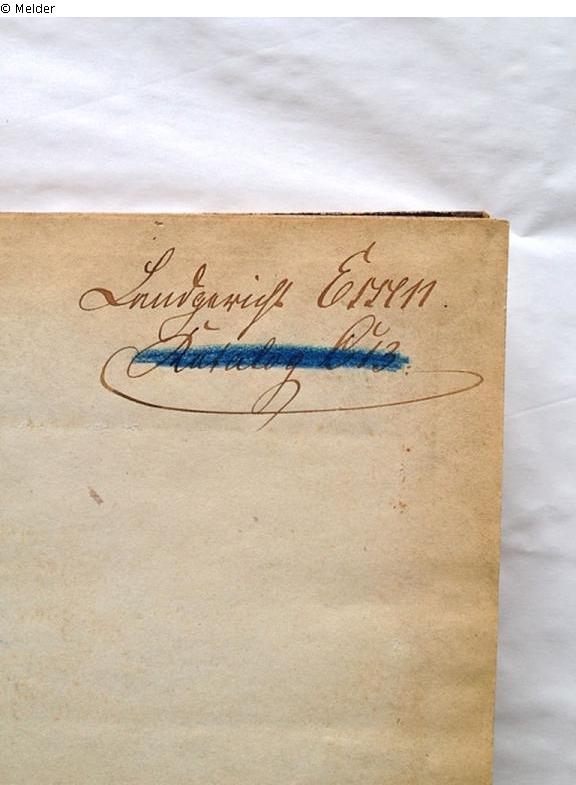 © Melder
Landgericht Essen.
Katalog